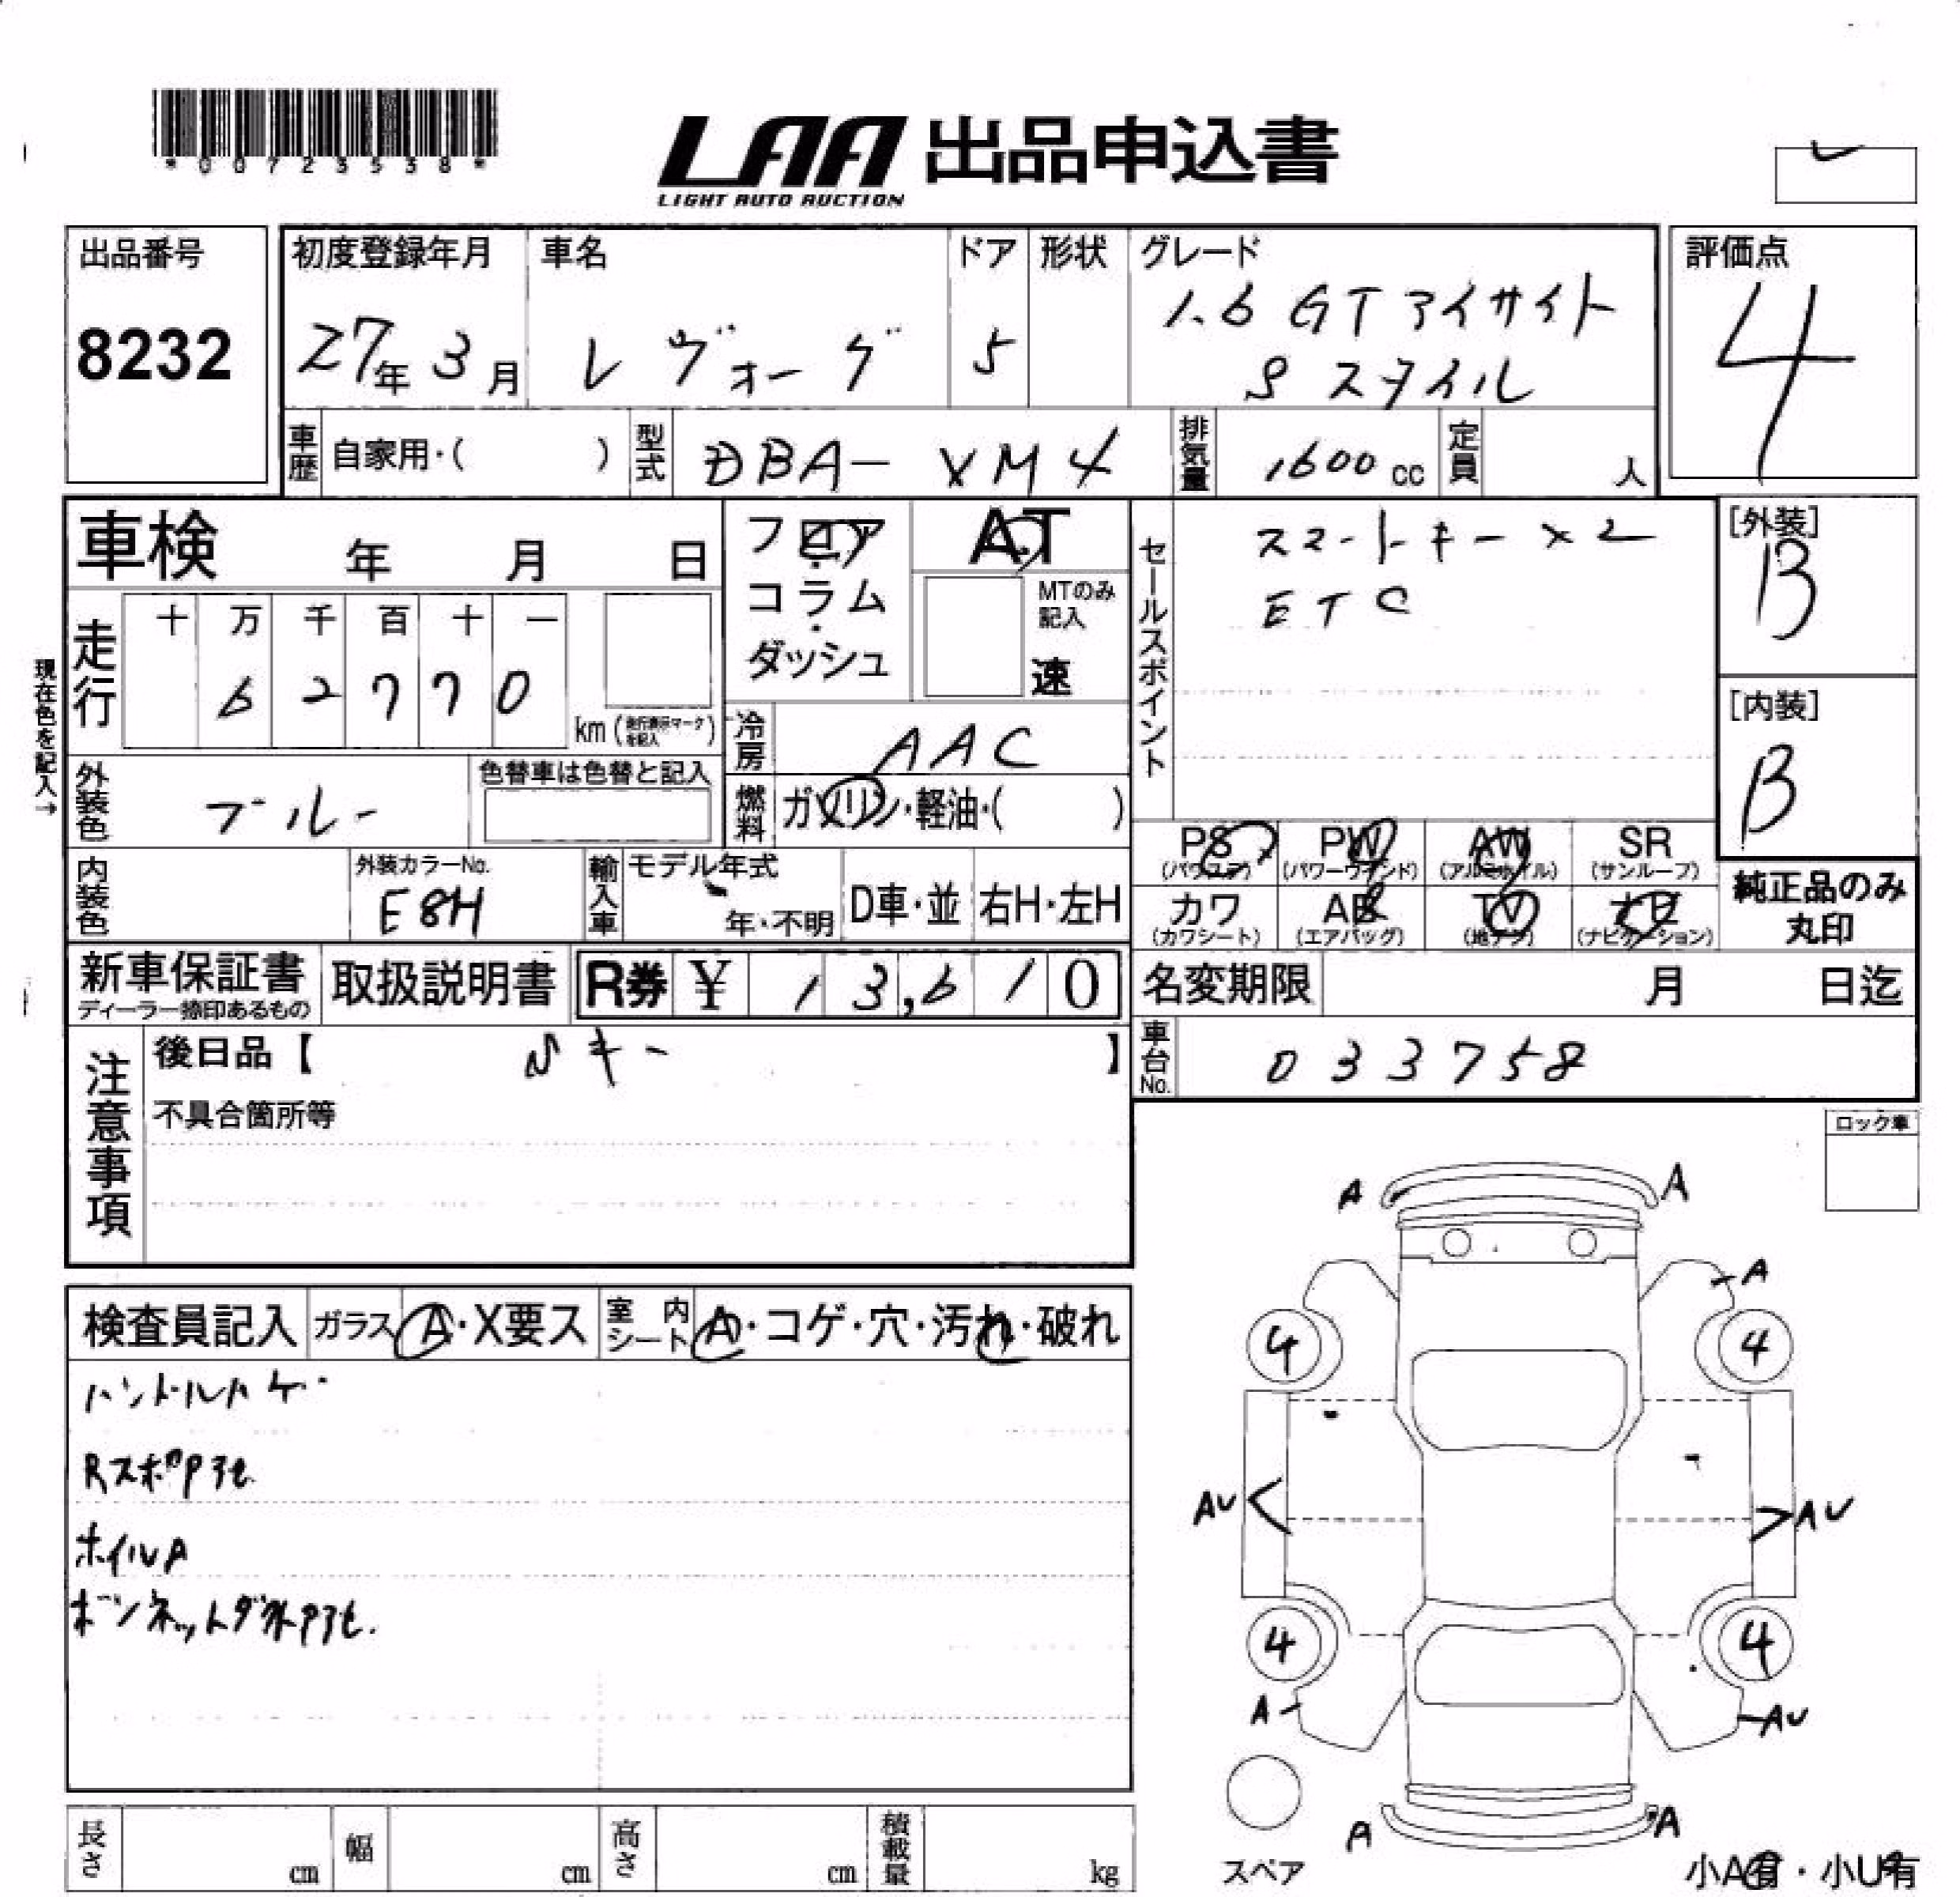 *00723538*
LAA 出品申込書
LIGHT AUTO AUCTION
出品番号
8232
初度登録年月
27年 3月
車名
レヴォーグ
ドア
5
形状
グレード
1.6 GT アイサイト
S スタイル
評価点
4
車歴 自家用・( )
型式 DBA- VM4
排気量 1600 cc
定員 人
車検 年 月 日
フロア
・
コラム
・
ダッシュ
AT
MTのみ
記入
速
セールスポイント
スマートキー ×2
ETC
[外装]
B
[内装]
B
現在色を記入→
走行
十 万 千 百 十 一
6 2 7 7 0
km (走行表示マークを記入)
冷房 AAC
外装色 ブルー
色替車は色替と記入
燃料 ガソリン・軽油・( )
PS
(パワステ)
PW
(パワーウインド)
AW
(アルミホイル)
SR
(サンルーフ)
カワ
(カワシート)
AB
(エアバッグ)
TV
(地デジ)
ナビ
(ナビゲーション)
純正品のみ
丸印
内装色
外装カラーNo.
E8H
輸入車
モデル年式
年・不明
D車・並
右H・左H
新車保証書
ディーラー捺印あるもの
取扱説明書
R券 ¥ 13,610
名変期限 月 日迄
車台No. 033758
注意事項
後日品【 キー 】
不具合箇所等
ロック車
検査員記入
ガラス A・X要ス
室内シート A・コゲ・穴・汚れ・破れ
ハンドルハゲ
ホイルA
A A
A
4 4
AU AU
4 4
A AU
A A
スペア
長さ cm
幅 cm
高さ cm
積載量 kg
小A有・小U有